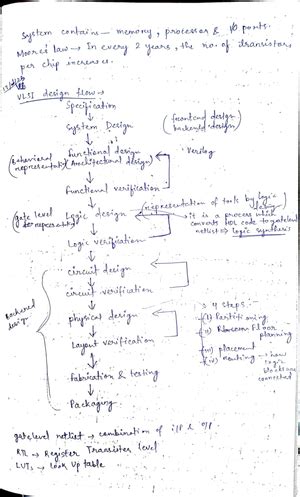 System contains — memory, processor & I/O ports.
Moores law → In every 2 years, the no. of transistors
per chip increases.
VLSI design flow →
Specification
(frontend design)
(backend design)
System Design
Functional design
(Behavioral representation)
(Architectural design)
Verilog
Functional verification
(representation of tools by logic
(gate level representation)
Logic design
→ it is a process which
converts
code to gatelevel
netlist ⇒ logic synthesis
Logic verification
circuit design
circuit verification
Backend design
physical design
→ 4 steps :-
(i) Partitioning
(ii) Floor
planning
(iii) placement
(iv) routing → how
logic
blocks are
connected
Layout verification
Fabrication & testing
Packaging
gatelevel netlist → combination of i/p & o/p
RTL → Register Transister level
LUTs → Look Up table